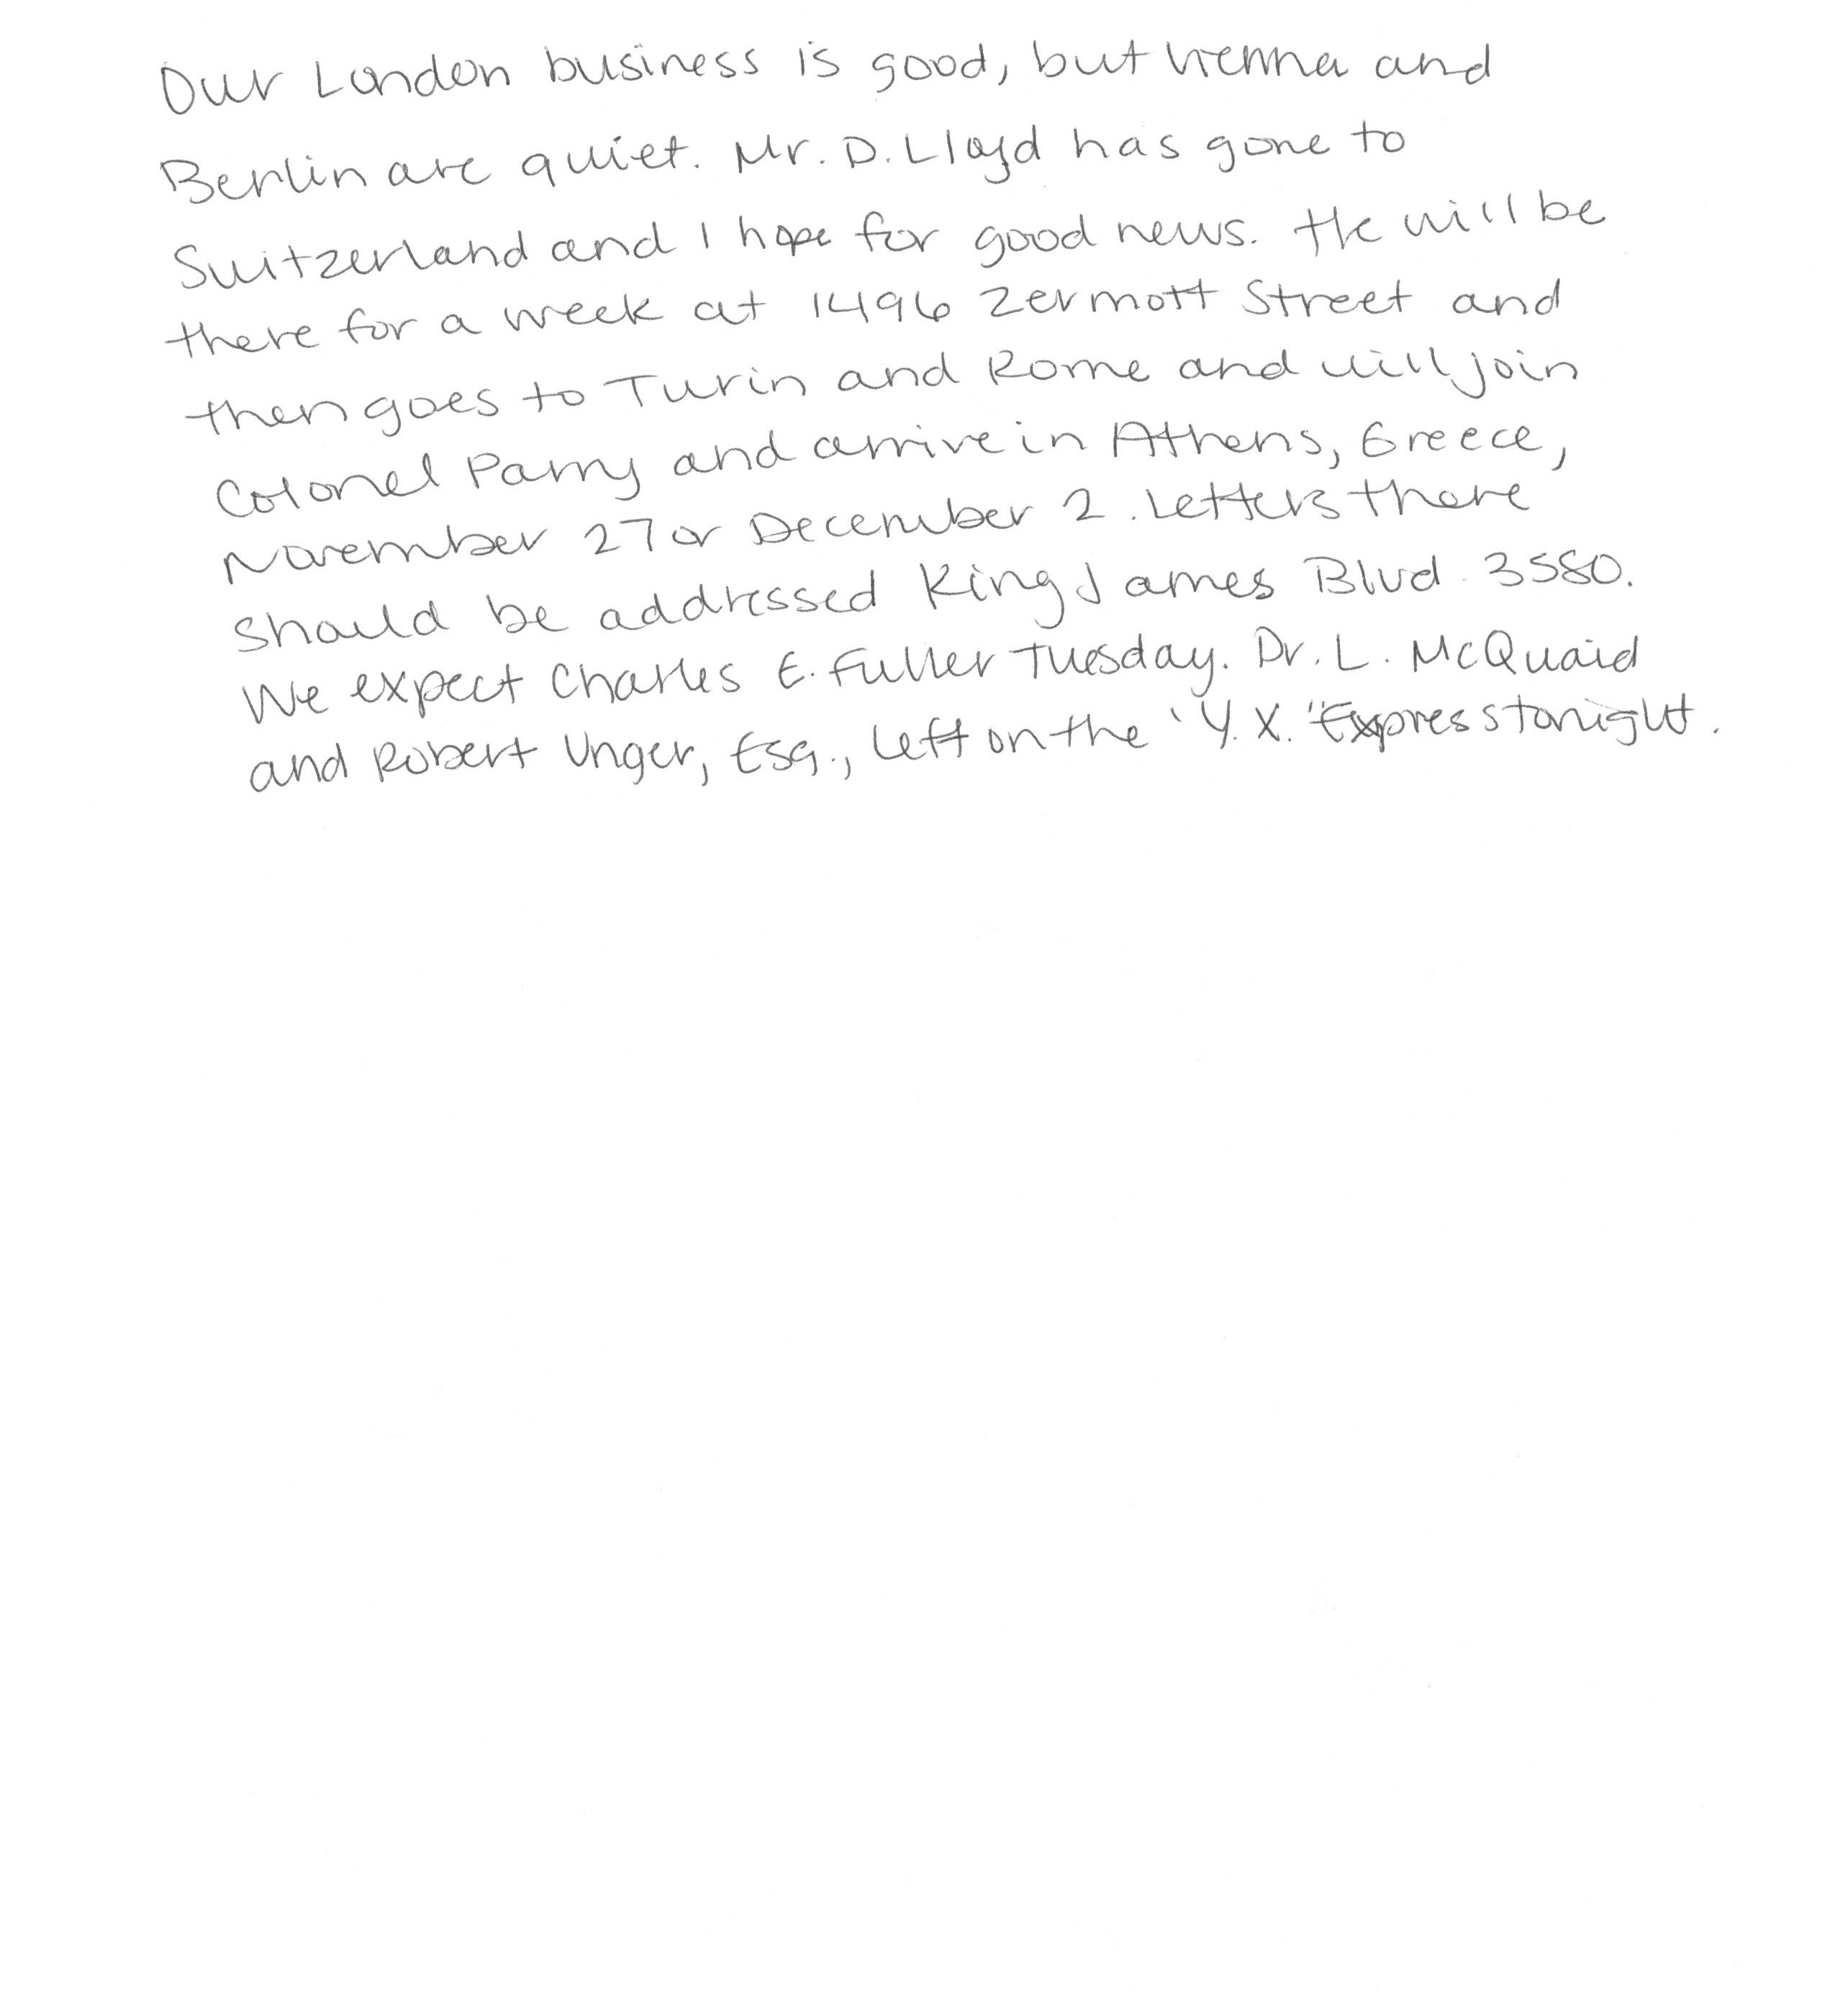 Our London business is good, but Vienna and
Berlin are quiet. Mr. D. Lloyd has gone to
Switzerland and I hope for good news. He will be
there for a week at 1496 Zermott Street and
then goes to Turin and Rome and will join
Colonel Parry and arrive in Athens, Greece,
November 27 or December 2. Letters there
should be addressed King James Blvd. 3580.
We expect Charles E. Fuller Tuesday. Dr. L. McQuaid
and Robert Unger, Esq., left on the 'Y.X.' Express tonight.